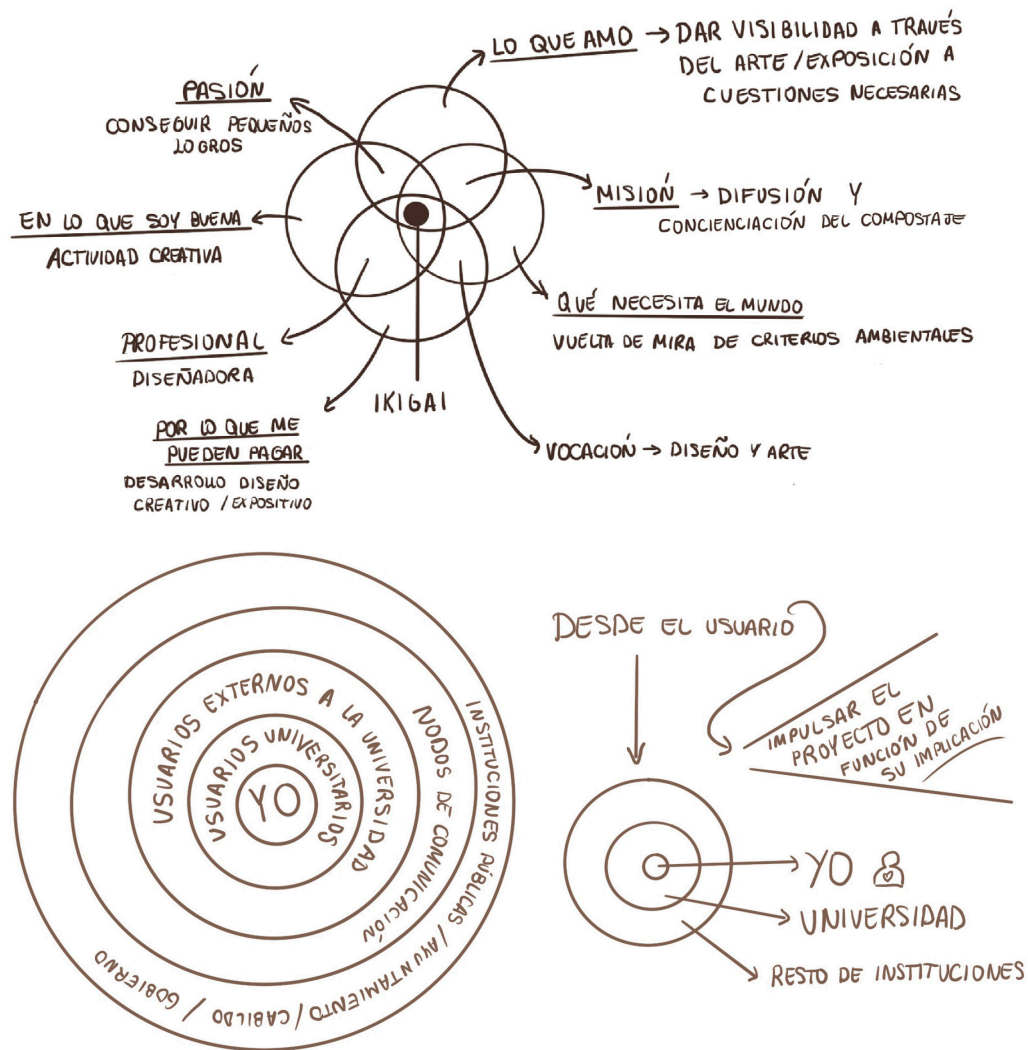 LO QUE AMO → DAR VISIBILIDAD A TRAVÉS
DEL ARTE/EXPOSICIÓN A
CUESTIONES NECESARIAS
PASIÓN
CONSEGUIR PEQUEÑOS
LOGROS
MISIÓN → DIFUSIÓN Y
CONCIENCIACIÓN DEL COMPOSTAJE
EN LO QUE SOY BUENA
ACTIVIDAD CREATIVA
QUÉ NECESITA EL MUNDO
VUELTA DE MIRA DE CRITERIOS AMBIENTALES
PROFESIONAL
DISEÑADORA
IKIGAI
POR LO QUE ME
PUEDEN PAGAR
DESARROLLO DISEÑO
CREATIVO / EXPOSITIVO
VOCACIÓN → DISEÑO Y ARTE
YO
USUARIOS UNIVERSITARIOS
USUARIOS EXTERNOS A LA UNIVERSIDAD
NODOS DE COMUNICACIÓN
INSTITUCIONES PÚBLICAS / AYUNTAMIENTO / CABILDO / GOBIERNO
DESDE EL USUARIO
IMPULSAR EL
PROYECTO EN
FUNCIÓN DE
SU IMPLICACIÓN
YO
UNIVERSIDAD
RESTO DE INSTITUCIONES